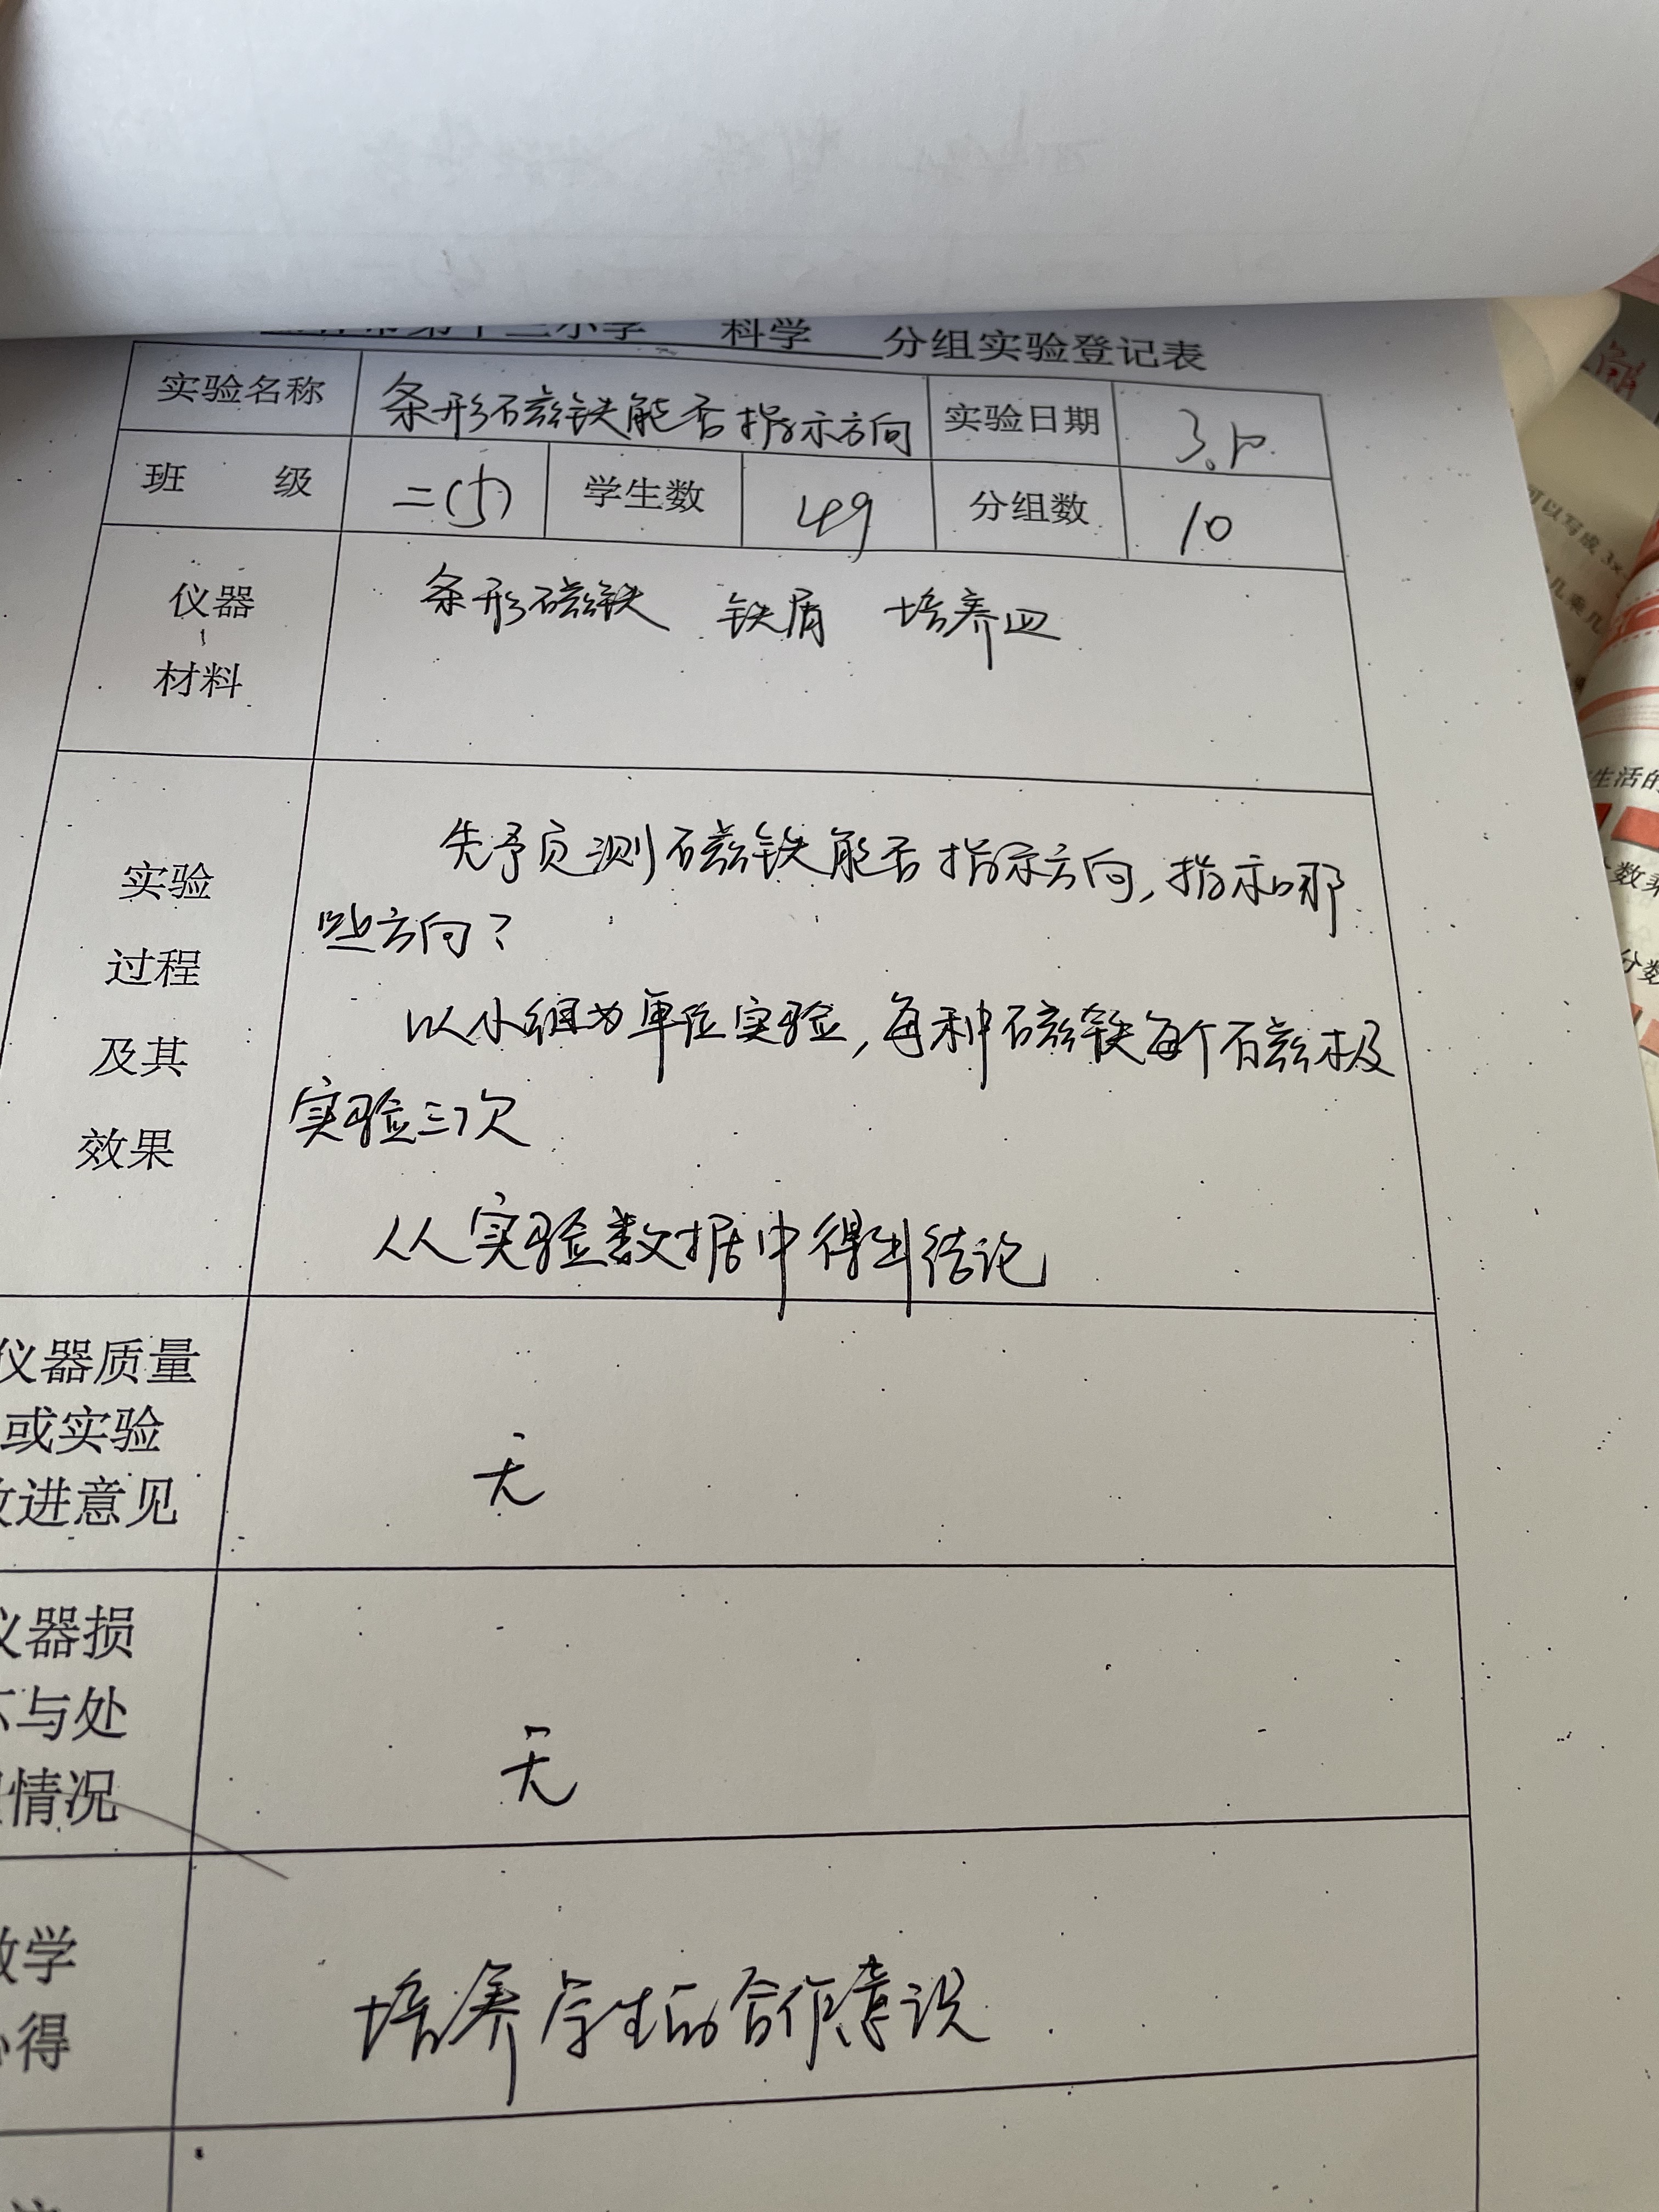 市第十三小学 科学 分组实验登记表
实验名称 条形磁铁能否指示方向 实验日期
班 级 二(5) 学生数 49 分组数 10
仪器 条形磁铁 铁屑 培养皿
材料
实验 先予页测磁铁能否指示方向,指示哪
过程 些方向?
及其 以小组为单位实验,每种磁铁每个磁极
效果 实验三次
从实验数据中得出结论
仪器质量
或实验 无
改进意见
仪器损
坏与处 无
理情况
教学 培养学生的合作意识
心得
可以写成3×
几乘几
生活的
数乘
分数